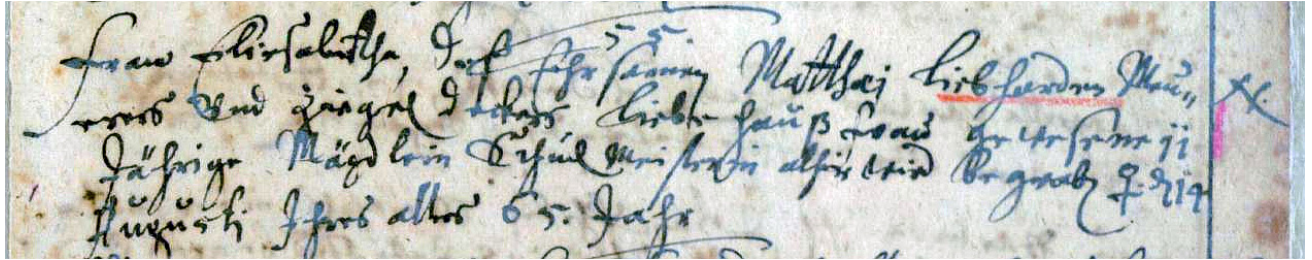 55.
Fraw Eliesabetha, deß Ehrsamen Matthaj Liebharden Meu„
erers Vnd Ziegel deckers liebe hauß fraw gewesene ii
Jährige Mägdlein Schulmeisterin alhir wird begrab ♀ d 14
Augusti Ihres alters 65. Jahr